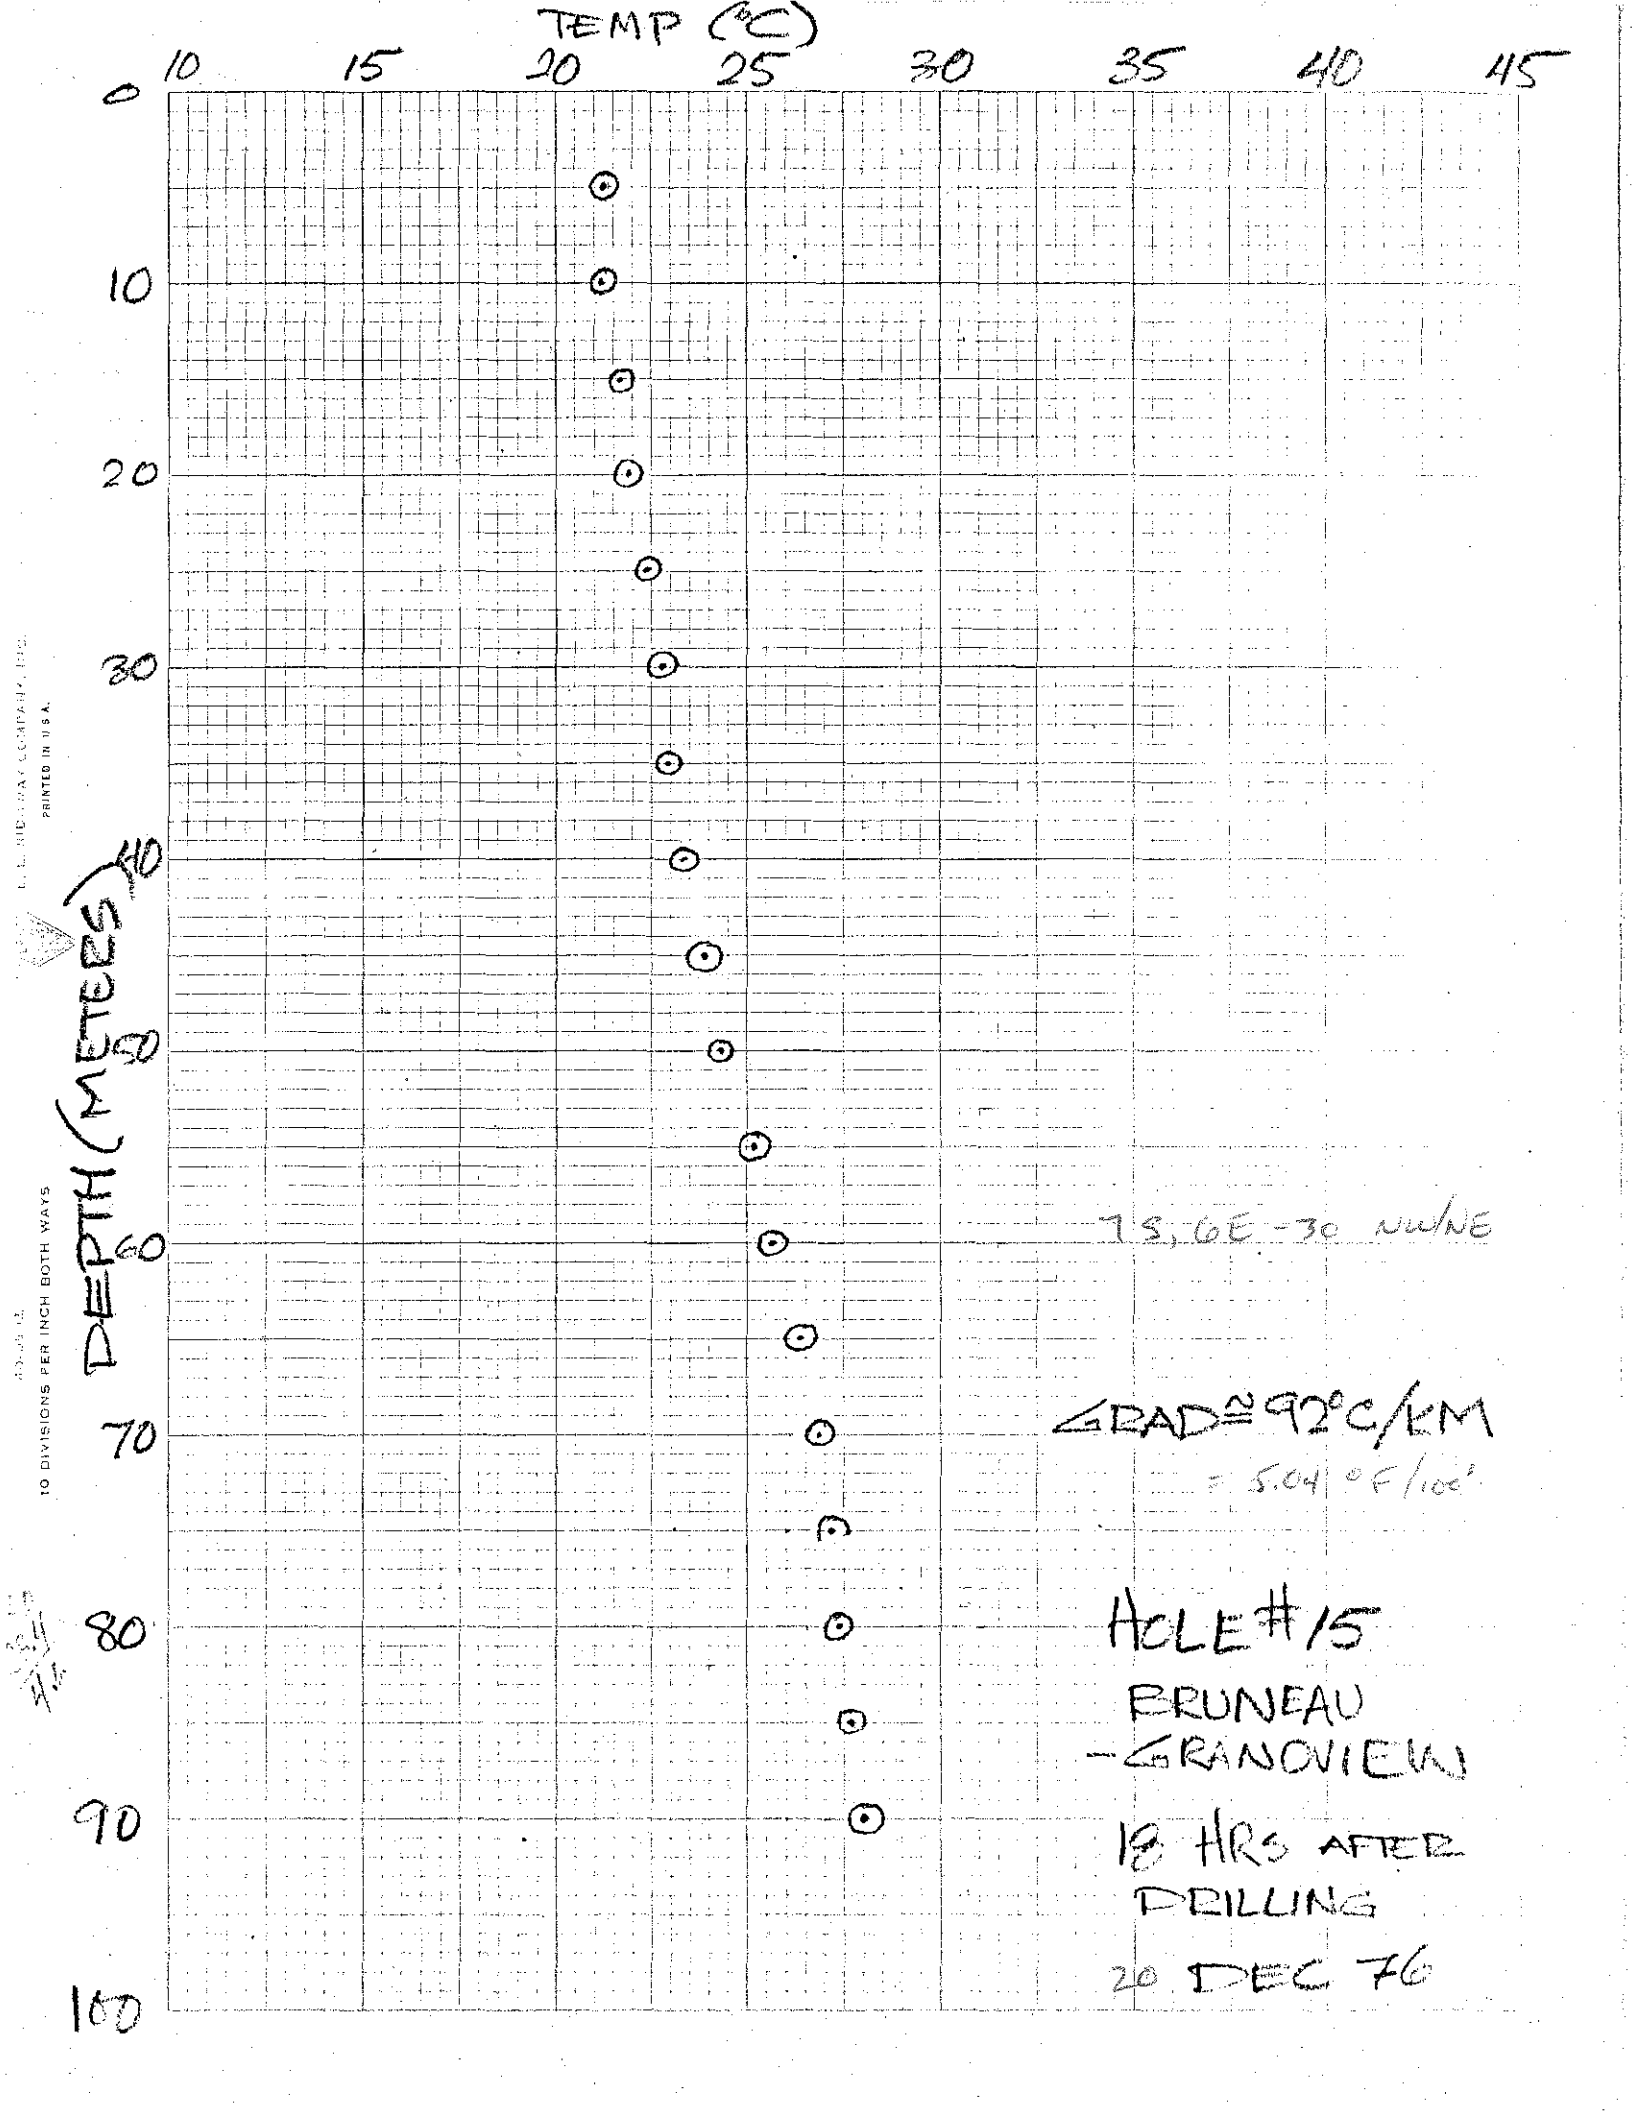 TEMP (°C)
10 15 20 25 30 35 40 45
0
10
20
30
40
50
60
70
80
90
100
DEPTH (METERS)
PRINTED IN U.S.A.
10 DIVISIONS PER INCH BOTH WAYS
7S, 6E -30 NW/NE
GRAD ≅ 92°C/KM
= 5.04 °F/100'
HOLE # 15
BRUNEAU
- GRANDVIEW
18 HRS AFTER
DRILLING
20 DEC 76